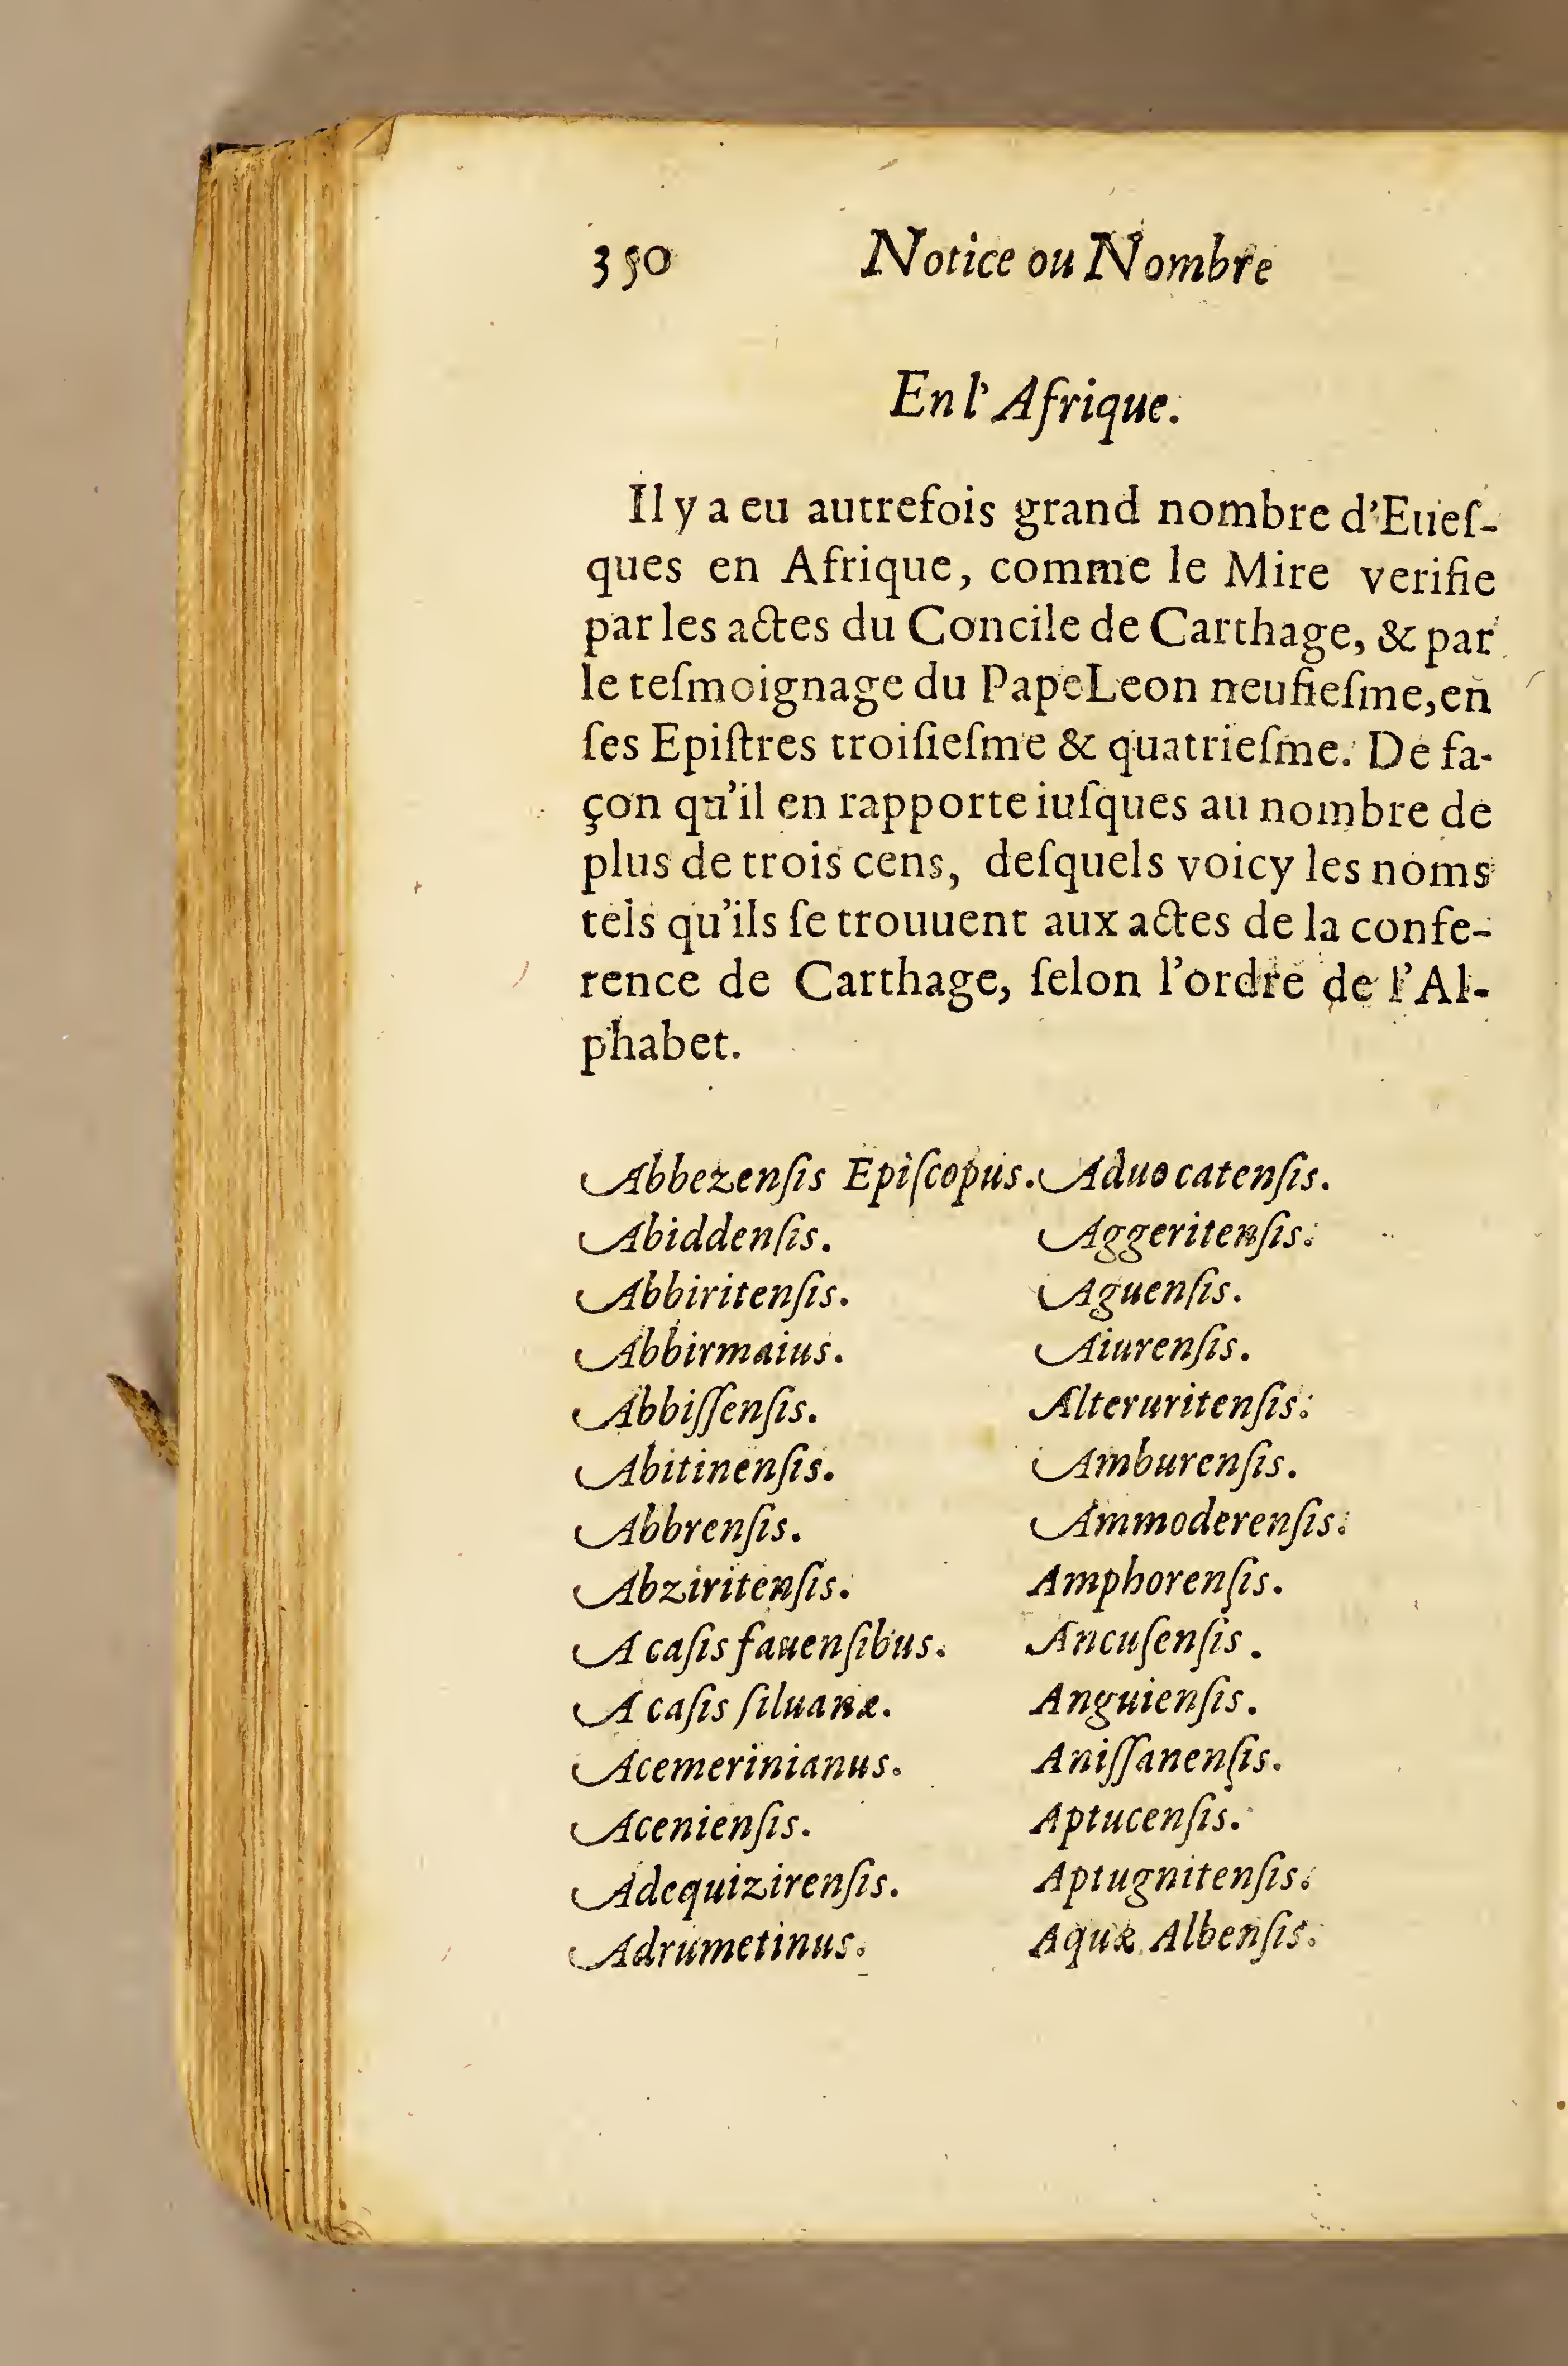 350 Notice ou Nombre
En l'Afrique.
Il y a eu autrefois grand nombre d'Eueſ-
ques en Afrique, comme le Mire verifie
par les actes du Concile de Carthage, & par
le teſmoignage du Pape Leon neufieſme, en
ſes Epiſtres troiſieſme & quatrieſme. De fa-
çon qu'il en rapporte iuſques au nombre de
plus de trois cens, deſquels voicy les noms
tels qu'ils ſe trouuent aux actes de la confe-
rence de Carthage, ſelon l'ordre de l'Al-
phabet.
Abbezenſis Epiſcopus.
Abiddenſis.
Abbiritenſis.
Abbirmaius.
Abbiſſenſis.
Abitinenſis.
Abbrenſis.
Abziritenſis.
A caſis fauenſibus.
A caſis ſiluanæ.
Acemerinianus.
Acenienſis.
Adequizirenſis.
Adrumetinus.
Aduocatenſis.
Aggeritenſis.
Aguenſis.
Aiurenſis.
Alteruritenſis.
Amburenſis.
Ammoderenſis.
Amphorenſis.
Ancuſenſis.
Anguienſis.
Aniſſanenſis.
Aptucenſis.
Aptugnitenſis.
Aquæ Albenſis.